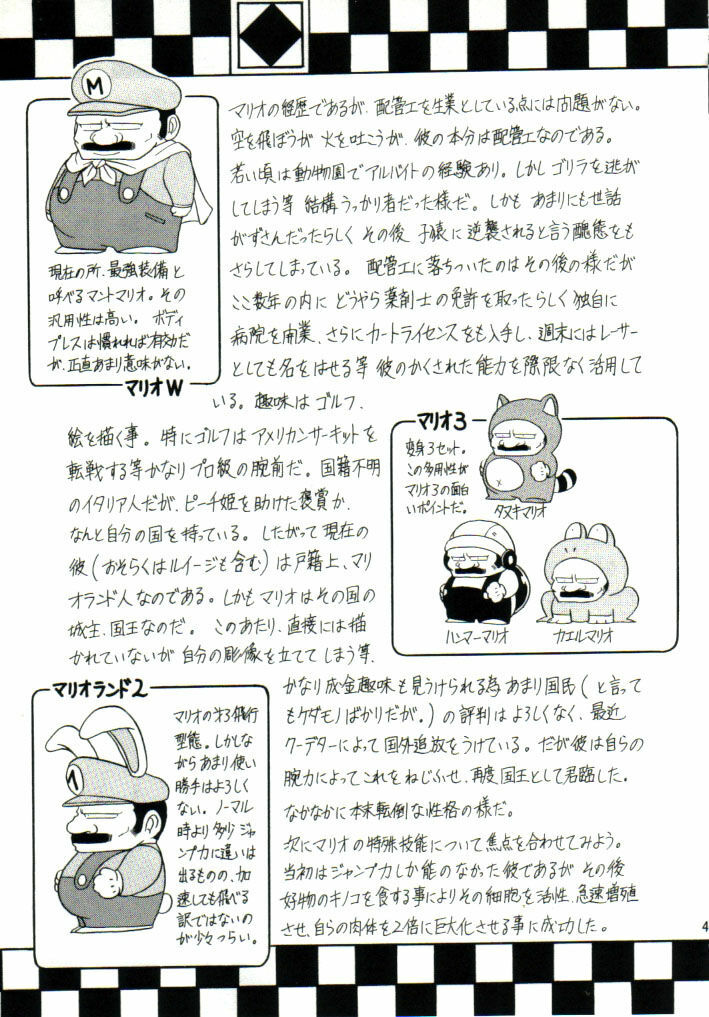 マリオの経歴であるが、配管工を生業としている点には問題がない。
空を飛ぼうが 火を吐こうが、彼の本分は配管工なのである。
若い頃は動物園でアルバイトの経験あり。しかし ゴリラを逃が
してしまう等 結構うっかり者だった様だ。しかも あまりにも世話
がずさんだったらしく その後 子猿に逆襲されると言う醜態をも
さらしてしまっている。 配管工に落ちついたのはその後の様だが
ここ数年の内に どうやら薬剤士の免許を取ったらしく 独自に
病院を開業、さらにカートライセンスをも入手し、週末にはレーサー
としても名をはせる等 彼のかくされた能力を際限なく活用して
いる。趣味はゴルフ、
絵を描く事。特にゴルフはアメリカンサーキットを
転戦する等かなりプロ級の腕前だ。国籍不明
のイタリア人だが、ピーチ姫を助けた褒賞か、
なんと自分の国を持っている。したがって現在の
彼(おそらくはルイージも含む)は戸籍上、マリ
オランド人なのである。しかもマリオはその国の
城主、国王なのだ。 このあたり、直接には描
かれていないが 自分の彫像を立ててしまう等、
かなり成金趣味も見うけられる為 あまり国民(と言って
もケダモノばかりだが。)の評判はよろしくなく、最近
クーデターによって国外追放をうけている。だが彼は自らの
腕力によってこれをねじふせ、再度国王として君臨した。
なかなかに本末転倒な性格の様だ。
次にマリオの特殊技能について焦点を合わせてみよう。
当初はジャンプ力しか能のなかった彼であるが その後
好物のキノコを食する事によりその細胞を活性、急速増殖
させ、自らの肉体を2倍に巨大化させる事に成功した。
M
現在の所、最強装備と
呼べるマントマリオ。その
汎用性は高い。 ボディ
プレスは慣れれば有効だ
が、正直あまり意味がない。
マリオW
マリオ3
変身3セット。
この多用性が
マリオ3の面白
いポイントだ。
タヌキマリオ
ハンマーマリオ
カエルマリオ
マリオランド2
マリオの第3飛行
型態。しかしな
がらあまり使い
勝手はよろしく
ない。ノーマル
時より多少ジャ
ンプ力に違いは
出るものの、加
速しても飛べる
訳ではないの
が少々つらい。
4